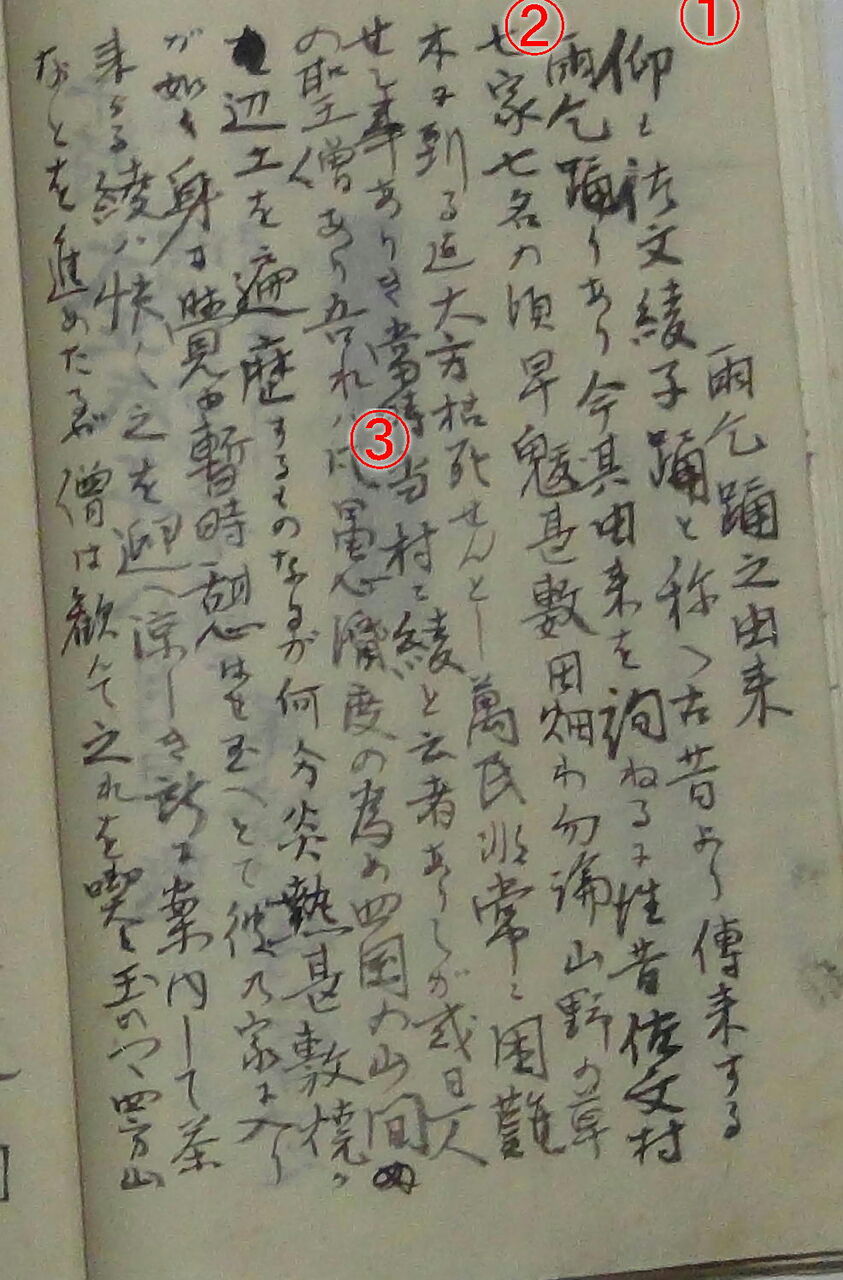 ①
雨乞踊之由来
仰々佐文綾子踊と称へ古昔より傳来する
②
雨乞踊りあり今其由来を詢ねるに往昔佐文村
七家七名の頃旱魃甚敷田畑わ勿論山野の草
木に到る迄大方枯死せんとし萬民非常に困難
せし事ありき當時当村に綾と云者ありしが或日一人
③
の聖僧あり吾れハ民 濟度の為め四国の山間
辺土を遍歴するものなるが何分炎熱甚敷焼く
が如く身に覚ゆ暫時憩はせ玉へとて彼の家に入り
来る綾ハ快く之を迎へ涼しき所に案内して茶
なとを進めたるが僧は歓んで之れを喫し玉ひつゝ四方山